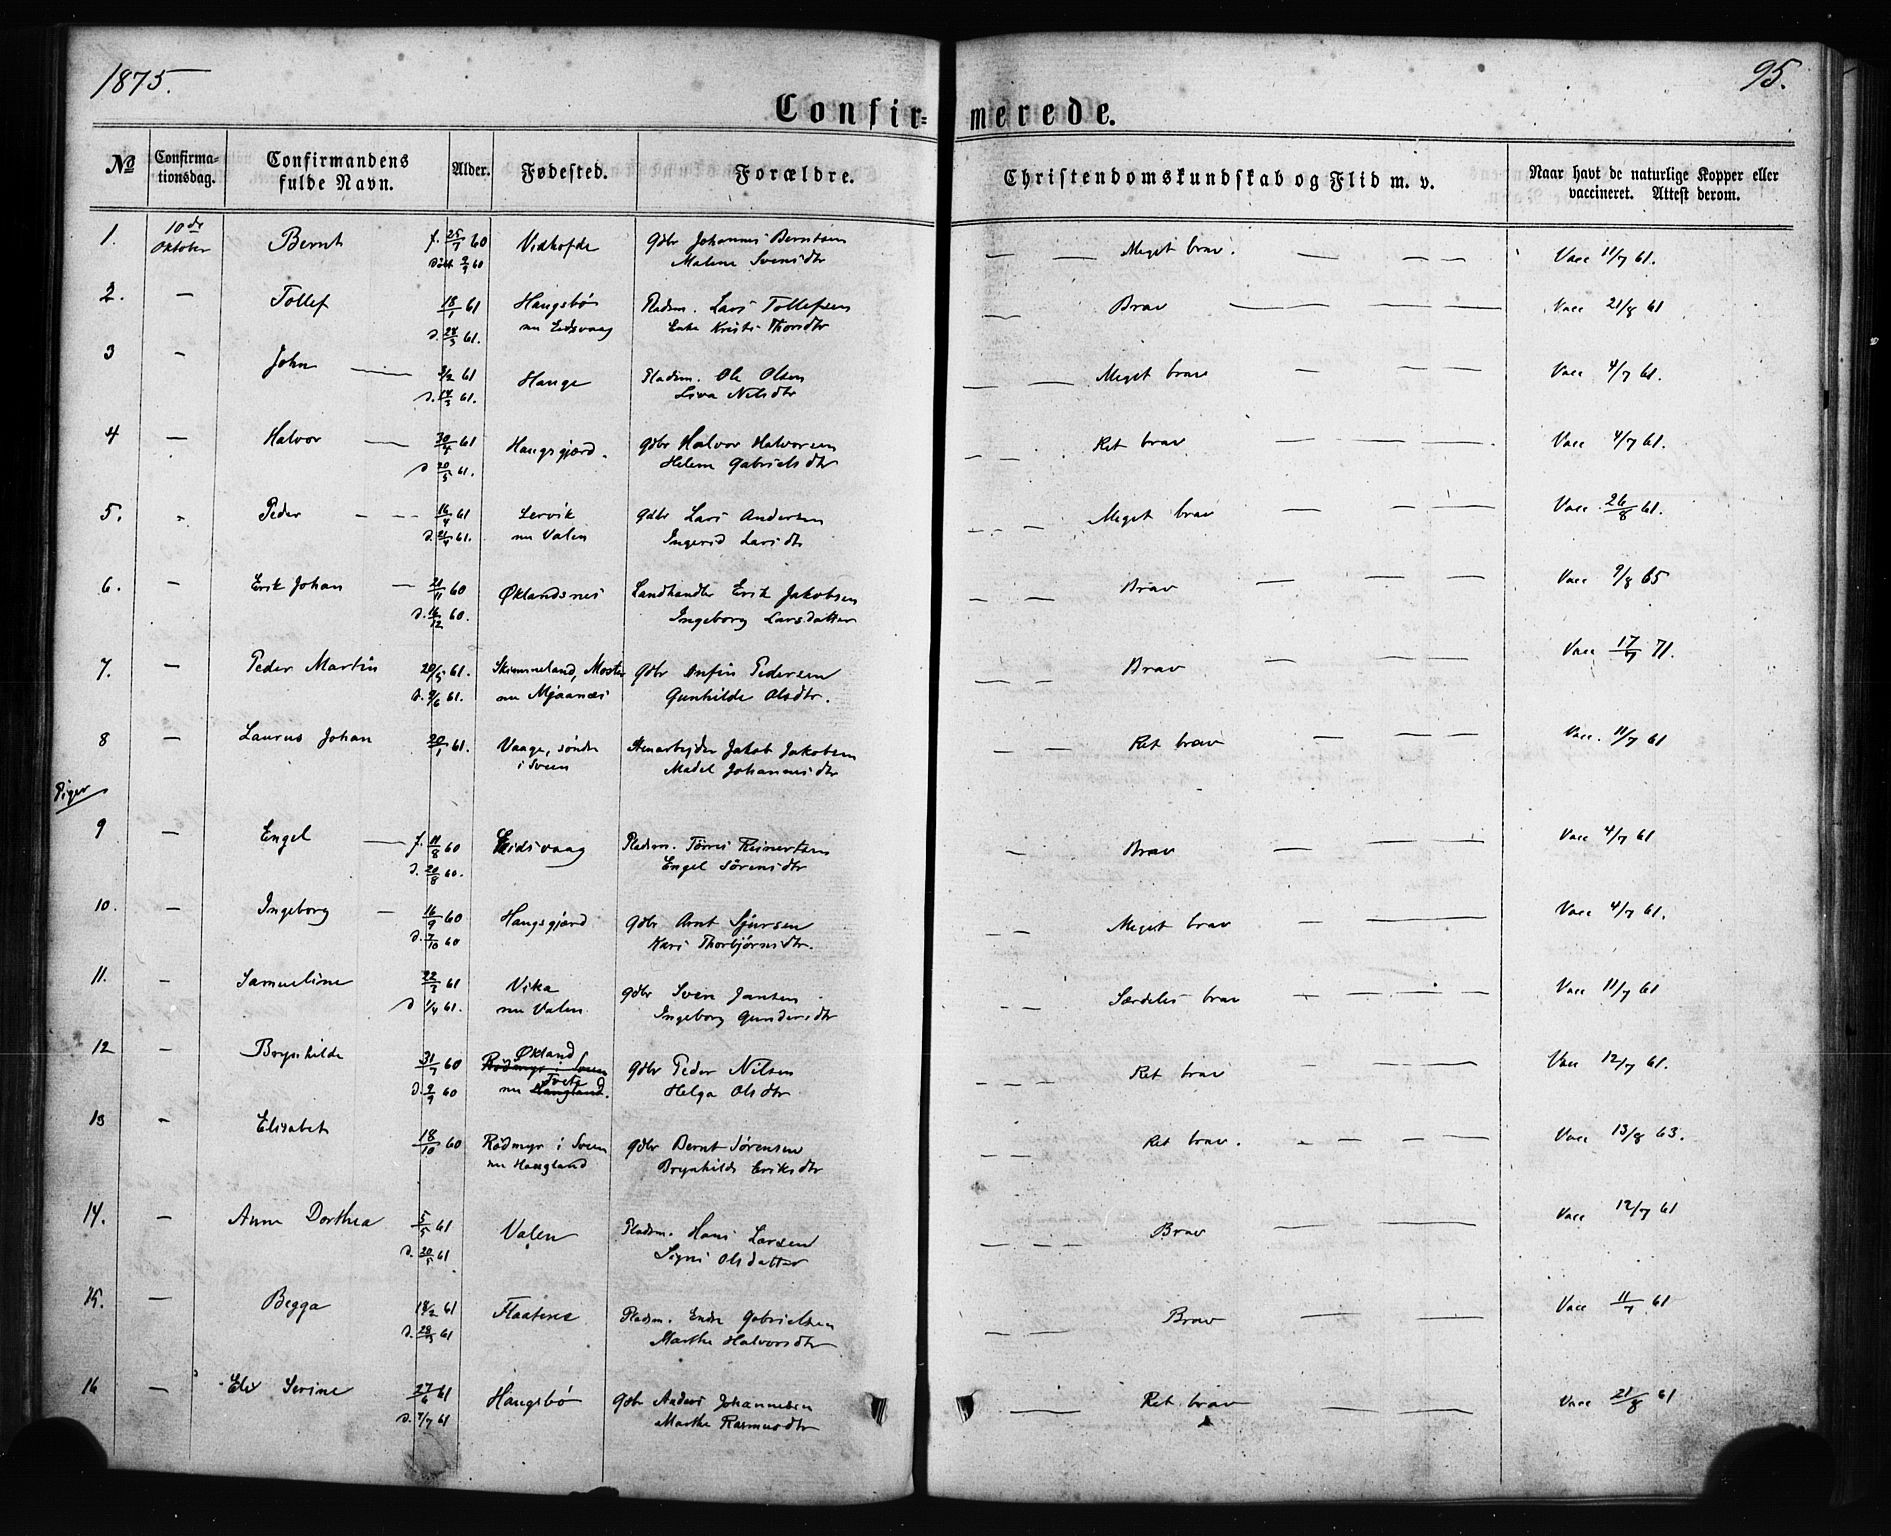 1875.
95.
Confir= merede.
No
Confirma-
tionsdag.
Confirmandens
fulde Navn.
Alder.
Fødested.
Forældre.
Christendomskundskab og Flid m. v.
Naar havt de naturlige Kopper eller
vaccineret. Attest derom.
1. 10de Oktober Bernt f. 25/7 60 Vidhofde Gdbr Johannes Berntsen — — Meget brav. — — — Vacc 11/7 61.
døbt 9/9 60 Malene Svensdtr
2. — Tollef 18/1 61 Haugsbø Pladsm. Lars Tollefsen — Brav — — — Vacc 21/8 61
d. 24/3 61. nu Eidsvaag Enke Kristi Thorsdtr
3 — John — 3/2 61 Hauge Pladsm. Ole Olsen — — Meget brav — — — Vacc 4/7 61.
d. 14/3 61. Siva Nelsdtr
4 — Halvor — 30/4 61 Haugsgjærd. Gdbr Halvor Halvorsen — — Ret brav — — — Vacc 4/7 61.
d 20/5 61. Helene Gabrielsdtr
5. - Peder — — 16/4 61 Lervik Gdbr Lars Andersen — — — Meget brav — — — Vacc 26/8 61.
d. 21/4 61. nu Valen Ingerid Larsdtr
6. — Erik Johan — 21/11 60 Øklandsnes Landhandler Erik Jakobsen — — Brav — — — Vacc 9/8 65
d. 16/12 60. Ingeborg Larsdatter
7. — Peder Martin 20/5 61. Skimmeland, Moster Gdbr Anfin Pedersen — — Brav — — — Vacc 17/7 71.
d. 9/6 61. nu Mjaanæs Gunhilde Olsdtr.
8 — Laurus Johan 20/1 61. Vaage, søndre Stenarbejder Jakob Jakobsen — — Ret brav — — — Vacc. 11/7 61
i Sveen Madel Johannesdtr
Piger
9 — Engel — f. 11/8 60 Eidsvaag Pladsm. Tørres Reinertsen — Brav — — — Vacc 4/7 61
d. 20/8 60. Engel Sørensdtr
10. — Ingeborg — 16/9 60 Haugsgjærd Gdbr Arnt Sjursen — — Meget brav — — Vacc 4/7 61.
d. 7/10 60 Kari Thorbjørnsdtr.
11. - Samueline 22/3 61 Vika Gdbr Sven Jansen — — Særdeles brav — — — — Vacc 11/7 61
d 1/4 61. nu Valen Ingeborg Gundersdtr
12 - Brynhilde 31/7 60 Økland Rödmyr i Sveen Gdbr Peder Nilsen — — Ret brav — — Vacc 12/7 61.
d. 2/9 60 nu Tveta Haugland. Helga Olsdtr
13 - Elisabet 18/10 60 Rödmyr i Sveen Gdbr Bernt Sørensen — — Ret brav. - — — — Vacc 13/8 63.
nu Haugland Brynhilde Eriksdtr
14. — Anne Dorthea 5/5 61 Valen Pladsm. Hans Larsen — — — Brav — — — Vacc 12/7 61
d. 20/5 61 Signi Olsdatter
15. — Begga 14/2 61 Flaatenes Pladsm. Endre Gabrielsen — — Brav — — Vacc 11/7 61
d. 28/3 61 Marthe Halvorsdtr
16 — Eli Serine 27/6 61 Haugsbø Gdbr Anders Johannesen — Ret brav — — — Vacc 21/8 61
d. 7/7 61 Marthe Rasmusdtr